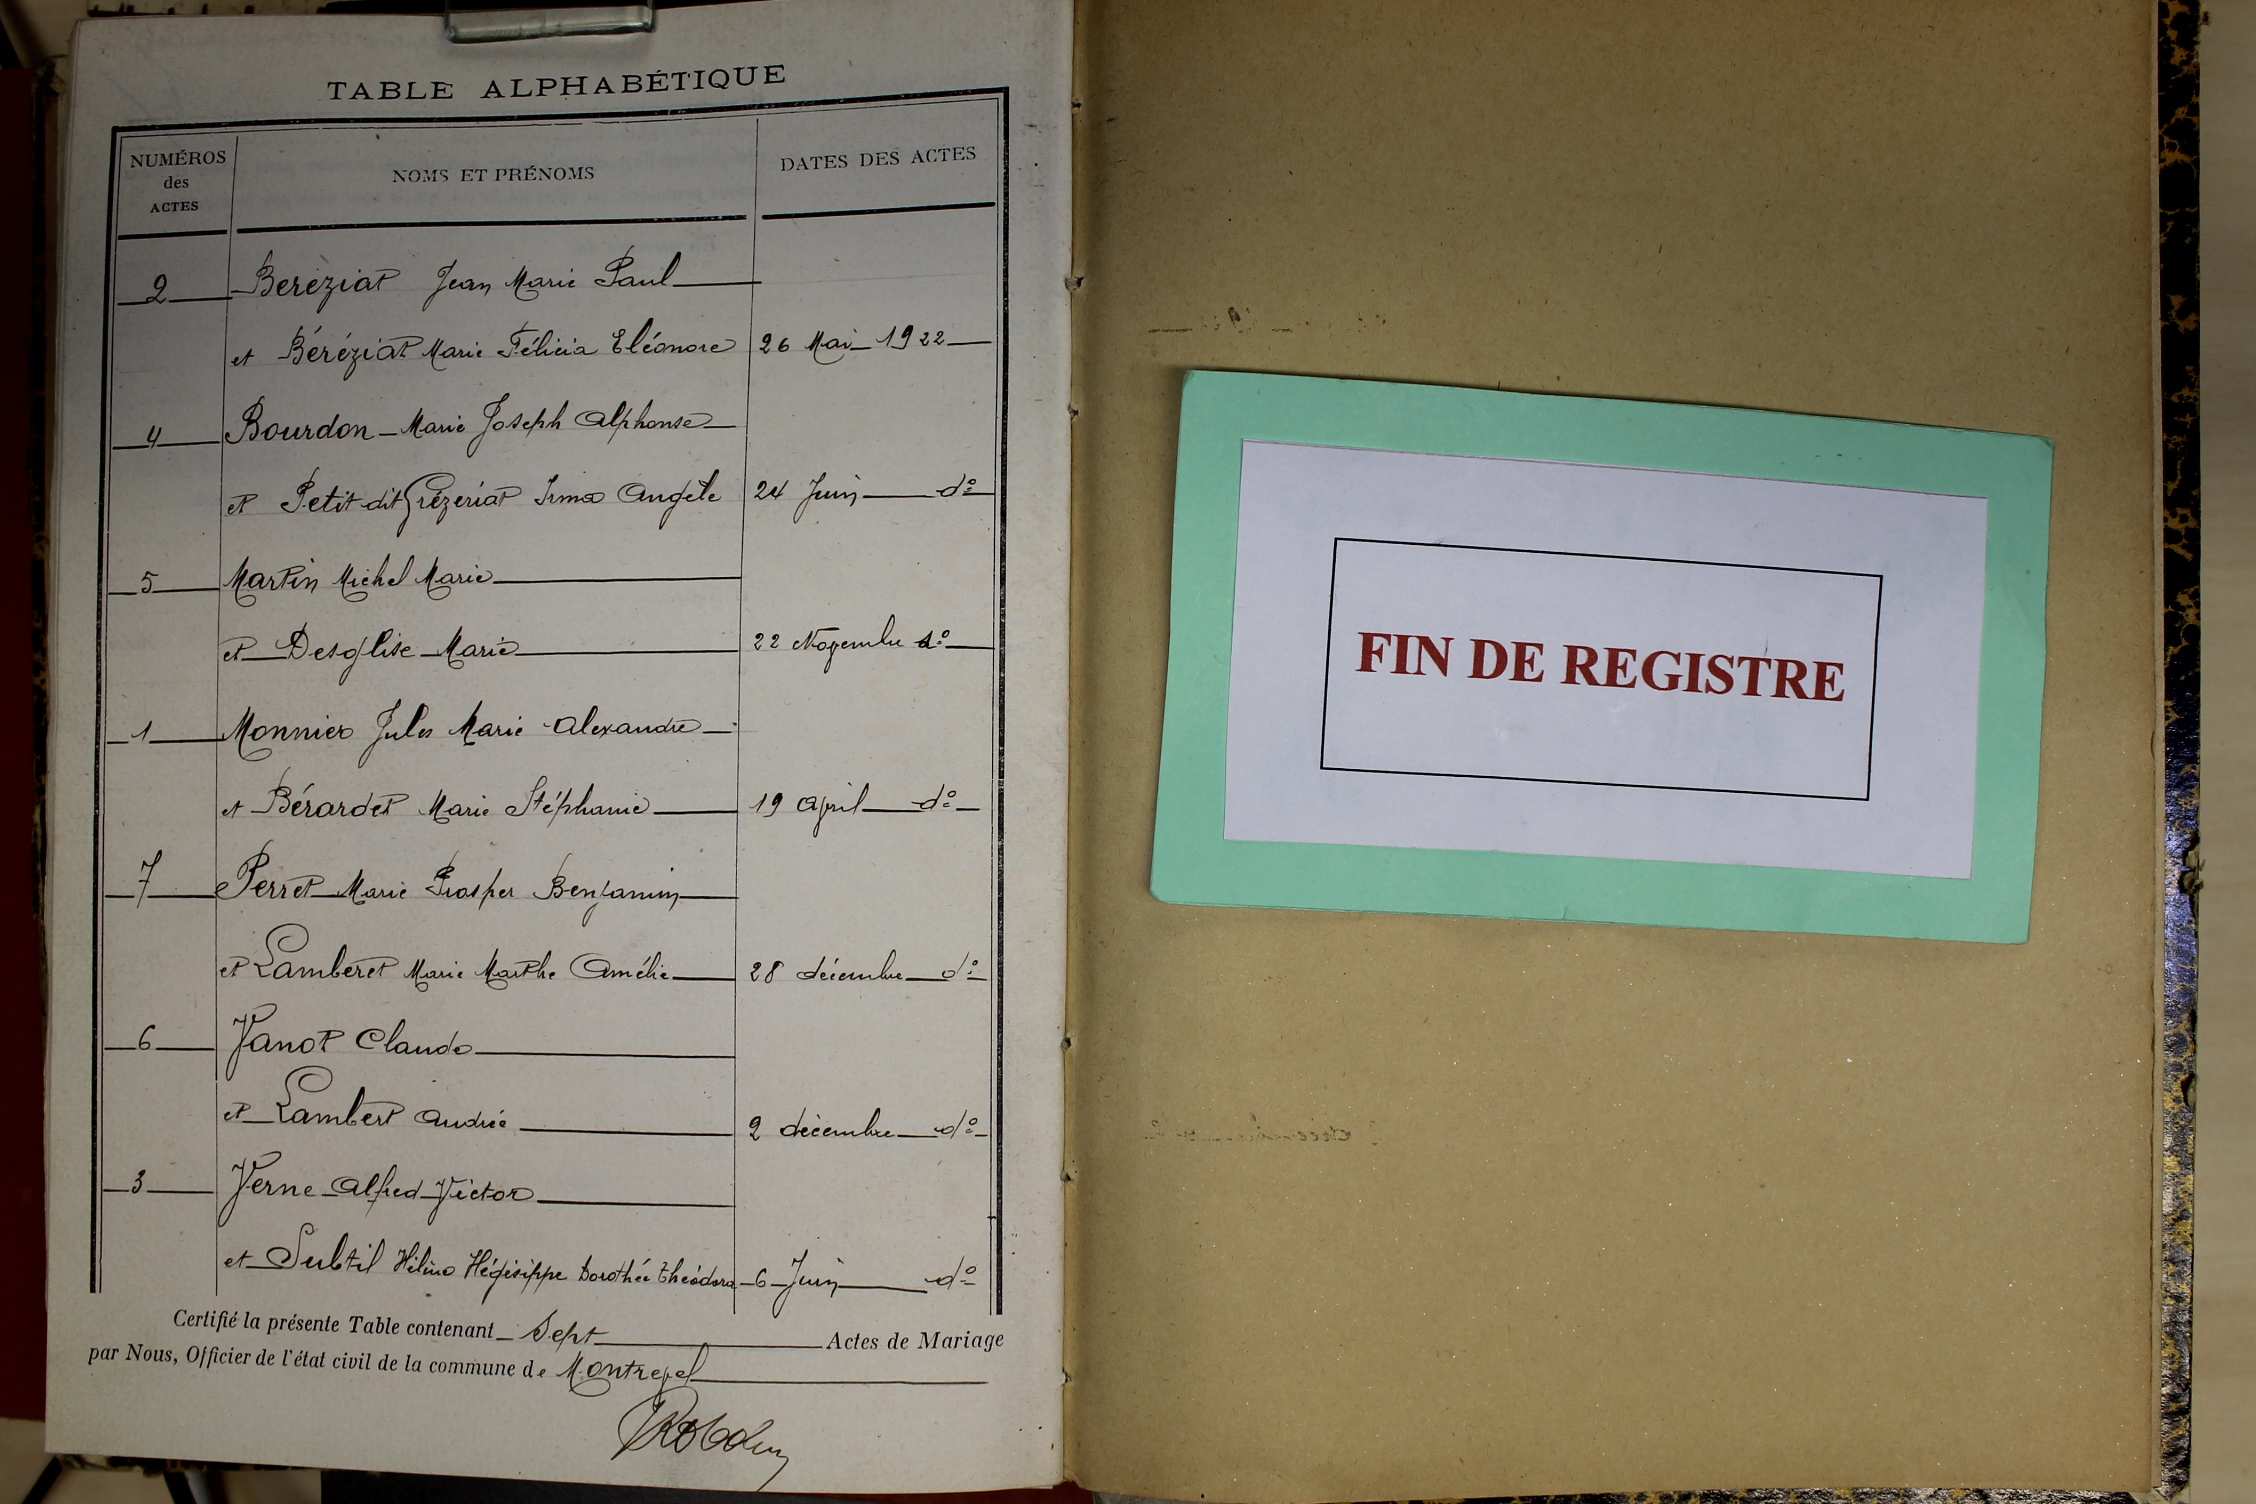 TABLE ALPHABÉTIQUE
NUMÉROS des ACTES
NOMS ET PRÉNOMS
DATES DES ACTES
2 Beréziat Jean Marie Paul
et Béréziat Marie Félicia Eléonore 26 Mai 1922
4 Bourdon Marie Joseph Alphonse
et Petit dit Grézeriat Irma Angèle 24 Juin do
5 Martin Michel Marie
et Desglise Marie 22 Novembre do
1 Monnier Jules Marie Alexandre
et Bérardet Marie Stéphanie 19 avril do
7 Perret Marie Prosper Benjamin
et Lamberet Marie Marthe Amélie 28 décembre do
6 Vanot Claude
et Lambert Andrée 2 décembre do
3 Verne Alfred Victor
et Subtil Hégésippe Dorothée Théodora 6 Juin do
Certifié la présente Table contenant Sept Actes de Mariage
par Nous, Officier de l'état civil de la commune de Montrevel
FIN DE REGISTRE